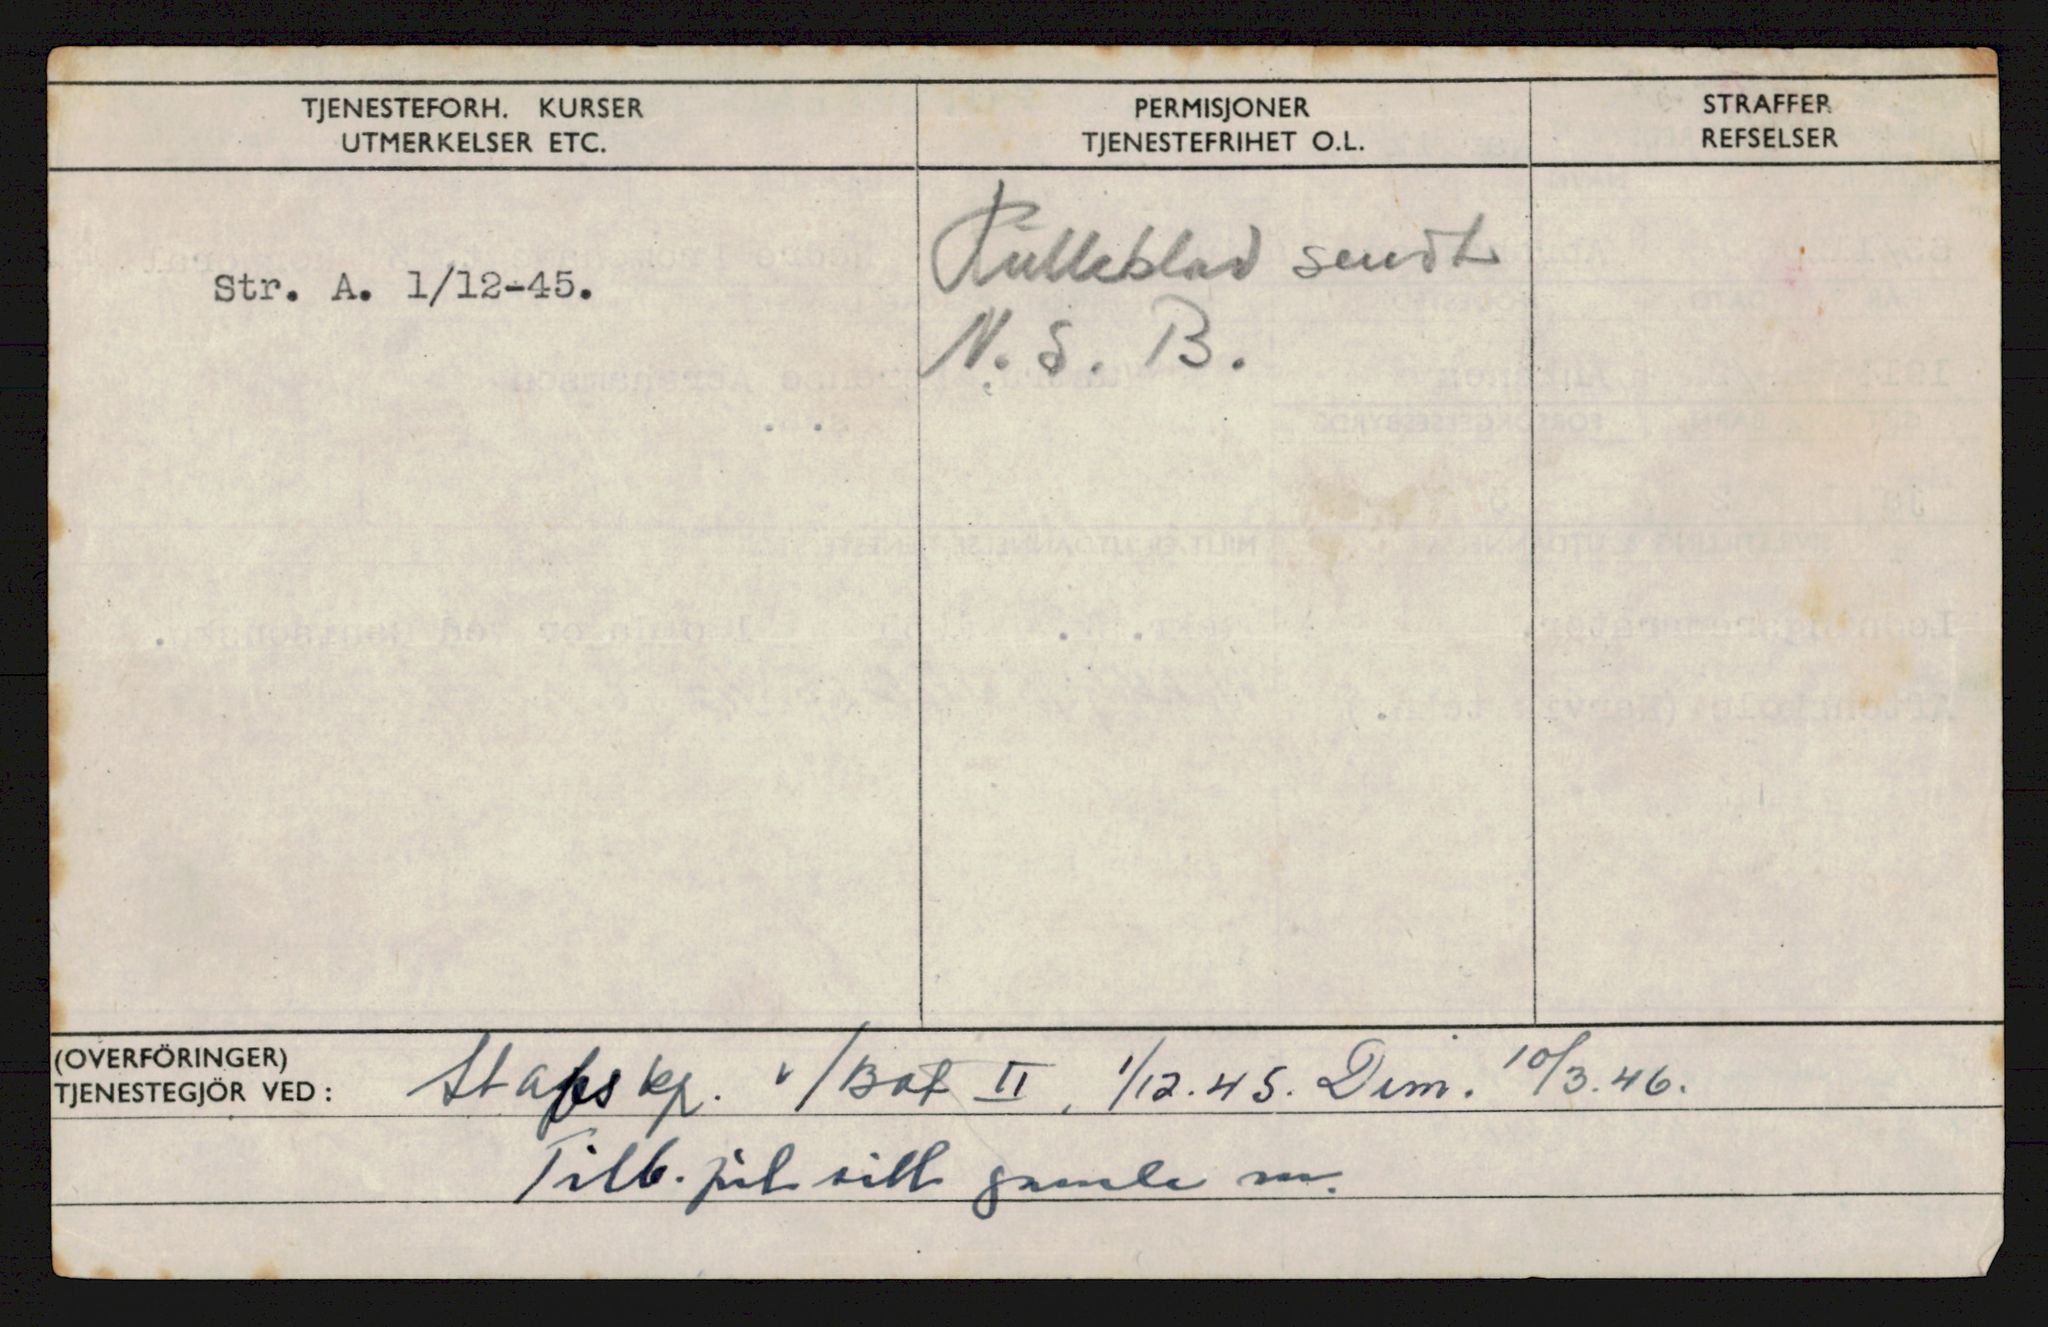 TJENESTEFORH. KURSER
UTMERKELSER ETC.
PERMISJONER
TJENESTEFRIHET O.L.
STRAFFER
REFSELSER
Str. A. 1/12-45.
Rulleblad sendt
N. S. B.
(OVERFÖRINGER)
TJENESTEGJÖR VED:
Stabskp. v/Bat II, 1/12.45. Dim. 10/3.46.
Tilb. sitt gamle